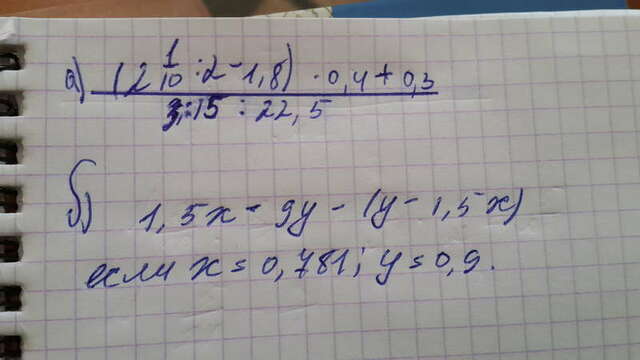 а) (2 1/10 : 2 - 1,8) · 0,4 + 0,3
3,15 : 22,5
б) 1,5x - 9y - (y - 1,5x)
если x = 0,781; y = 0,9.